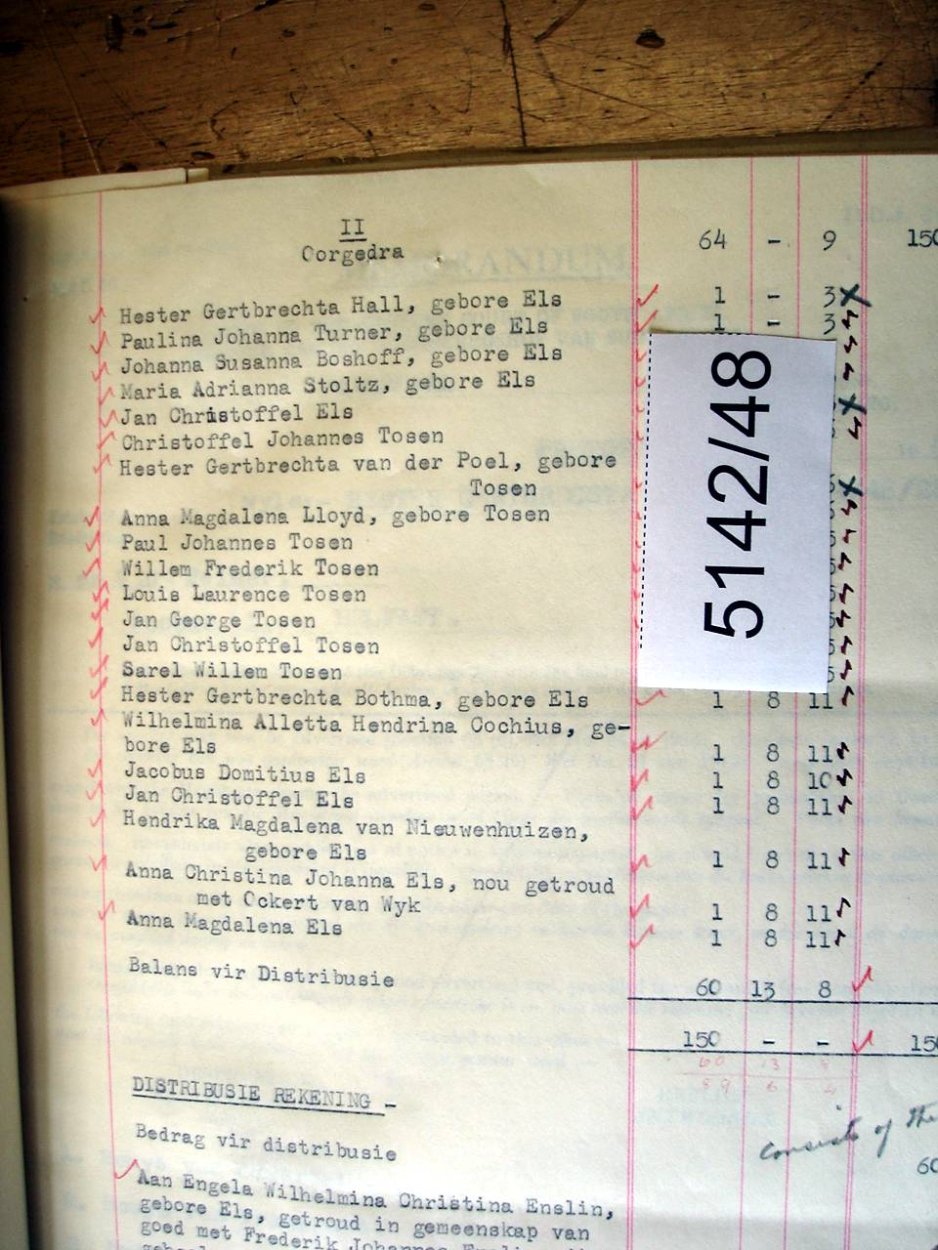 II
Oorgedra 64 - 9 150
Hester Gertbrechta Hall, gebore Els 1 - 3
Paulina Johanna Turner, gebore Els 1 - 3
Johanna Susanna Boshoff, gebore Els
Maria Adrianna Stoltz, gebore Els
Jan Christoffel Els
Christoffel Johannes Tosen
Hester Gertbrechta van der Poel, gebore
Tosen
Anna Magdalena Lloyd, gebore Tosen
Paul Johannes Tosen
Willem Frederik Tosen
Louis Laurence Tosen
Jan George Tosen
Jan Christoffel Tosen
Sarel Willem Tosen
5142/48
Hester Gertbrechta Bothma, gebore Els 1 8 11
Wilhelmina Alletta Hendrina Cochius, ge-
bore Els 1 8 11
Jacobus Domitius Els 1 8 10
Jan Christoffel Els 1 8 11
Hendrika Magdalena van Nieuwenhuizen,
gebore Els 1 8 11
Anna Christina Johanna Els, nou getroud
met Ockert van Wyk 1 8 11
Anna Magdalena Els 1 8 11
Balans vir Distribusie 60 13 8
150 - - 150
60 13 8
89 6 4
DISTRIBUSIE REKENING -
consists of the
Bedrag vir distribusie 60
Aan Engela Wilhelmina Christina Enslin,
gebore Els, getroud in gemeenskap van
goed met Frederik Johannes